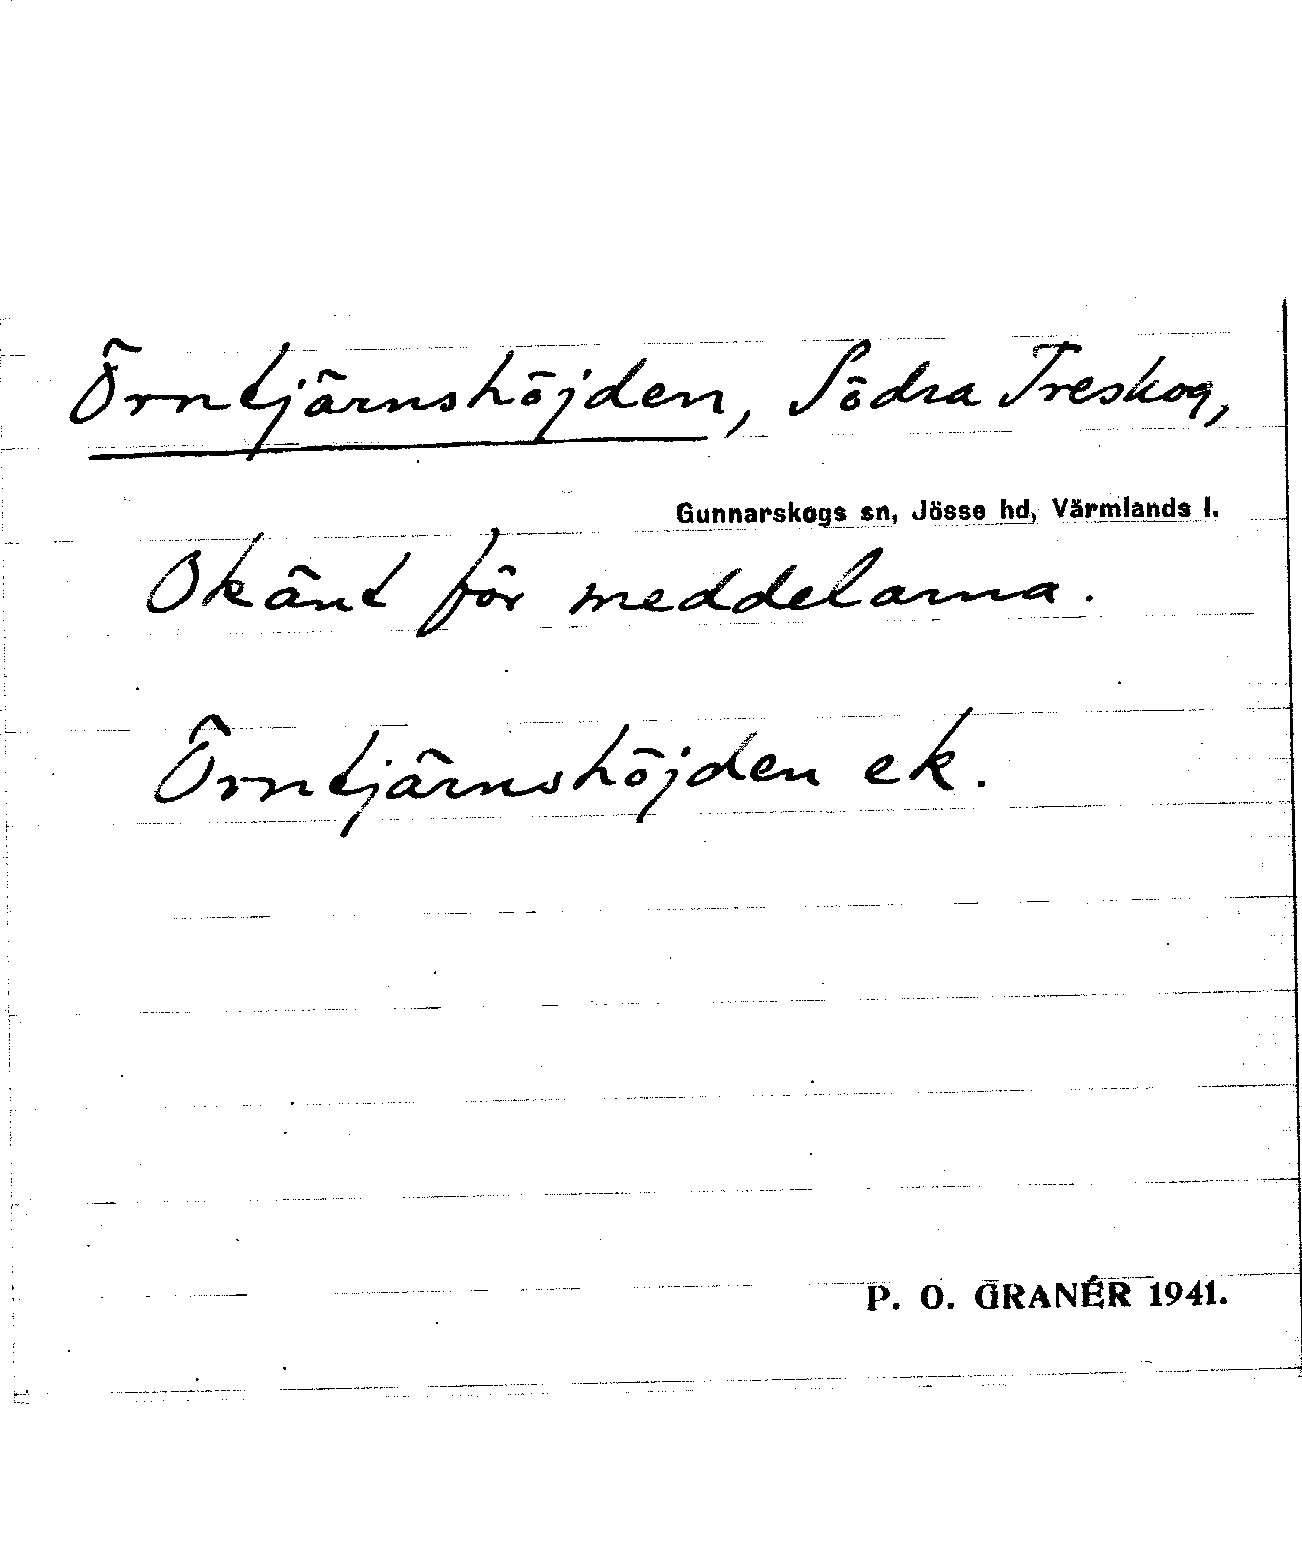 Örntjärnshöjden, Södra Treskog,
Gunnarskogs sn, Jösse hd, Värmlands l.
Okänt för meddelarna.
Örntjärnshöjden ek.
P. O. GRANÉR 1941.